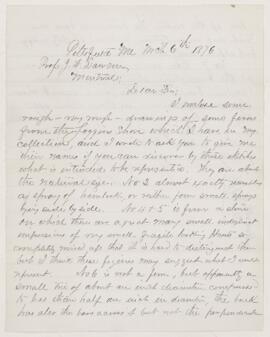 Me Mch 6th 1876
Prof. J. W. Dawson
Montreal
Dear Sir,
I enclose some
rough - very rough - drawings of some ferns
from the Joggins Shore which I have in my
collection, and I wish to ask you to give me
their names if you can discover by these sketches
what is intended to be represented. They are about
the natural size. No 2 almost exactly resembles
a spray of hemlock, or rather four small sprays
lying side by side. No 4 & 5 is from a stone
on which there are a great many small indistinct
impressions of very small fragile looking plants so
completely mixed up that it is hard to distinguish them
but I think these figures may suggest what I want
represent. No 6 is not a fern, but apparently a
small tree of about an inch diameter compressed
to less than half an inch in diameter, the bark
has also the bars across it but not the perpendicular